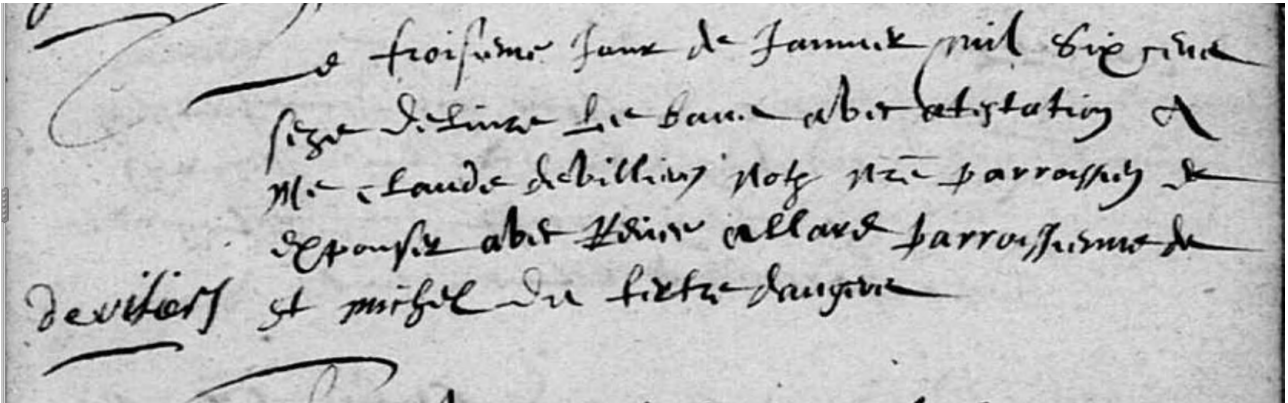 Le troisieme Jour de Janvier mil Six cens
seze delivre Les bans avec atestation A
Me Claude devilliers notre parroissien de
expouser avec Renee allard parroissienne de
devilliers St michel du tertre dangers